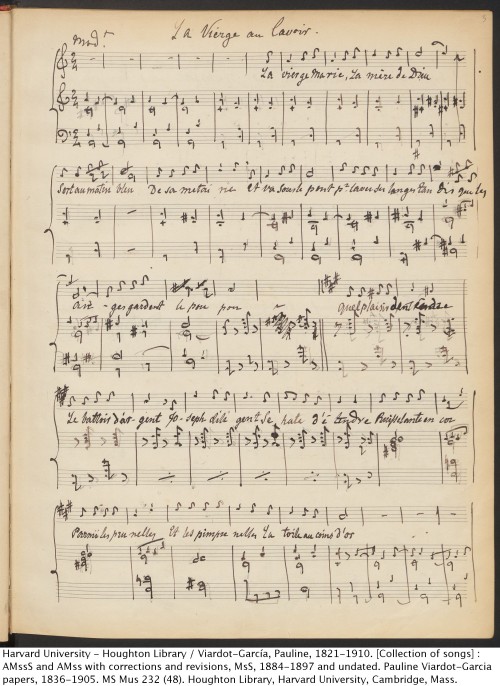 La Vierge au lavoir.
Mod.t
La vierge Marie, La mère de Dieu
Sort au matin bleu De sa métai rie et va sous le pont pr laver des langes tan dis que les
an - ges gardent le pour quel plaisir d'entendre
Le battoir d'ar - gent Jo - seph dili gent Se hate d'é tendre
Parmi les pru nelles Et les pimpre nelles La toile au coins d'or
Harvard University - Houghton Library / Viardot-García, Pauline, 1821-1910. [Collection of songs] :
AMssS and AMss with corrections and revisions, MsS, 1884-1897 and undated. Pauline Viardot-Garcia
papers, 1836-1905. MS Mus 232 (48). Houghton Library, Harvard University, Cambridge, Mass.